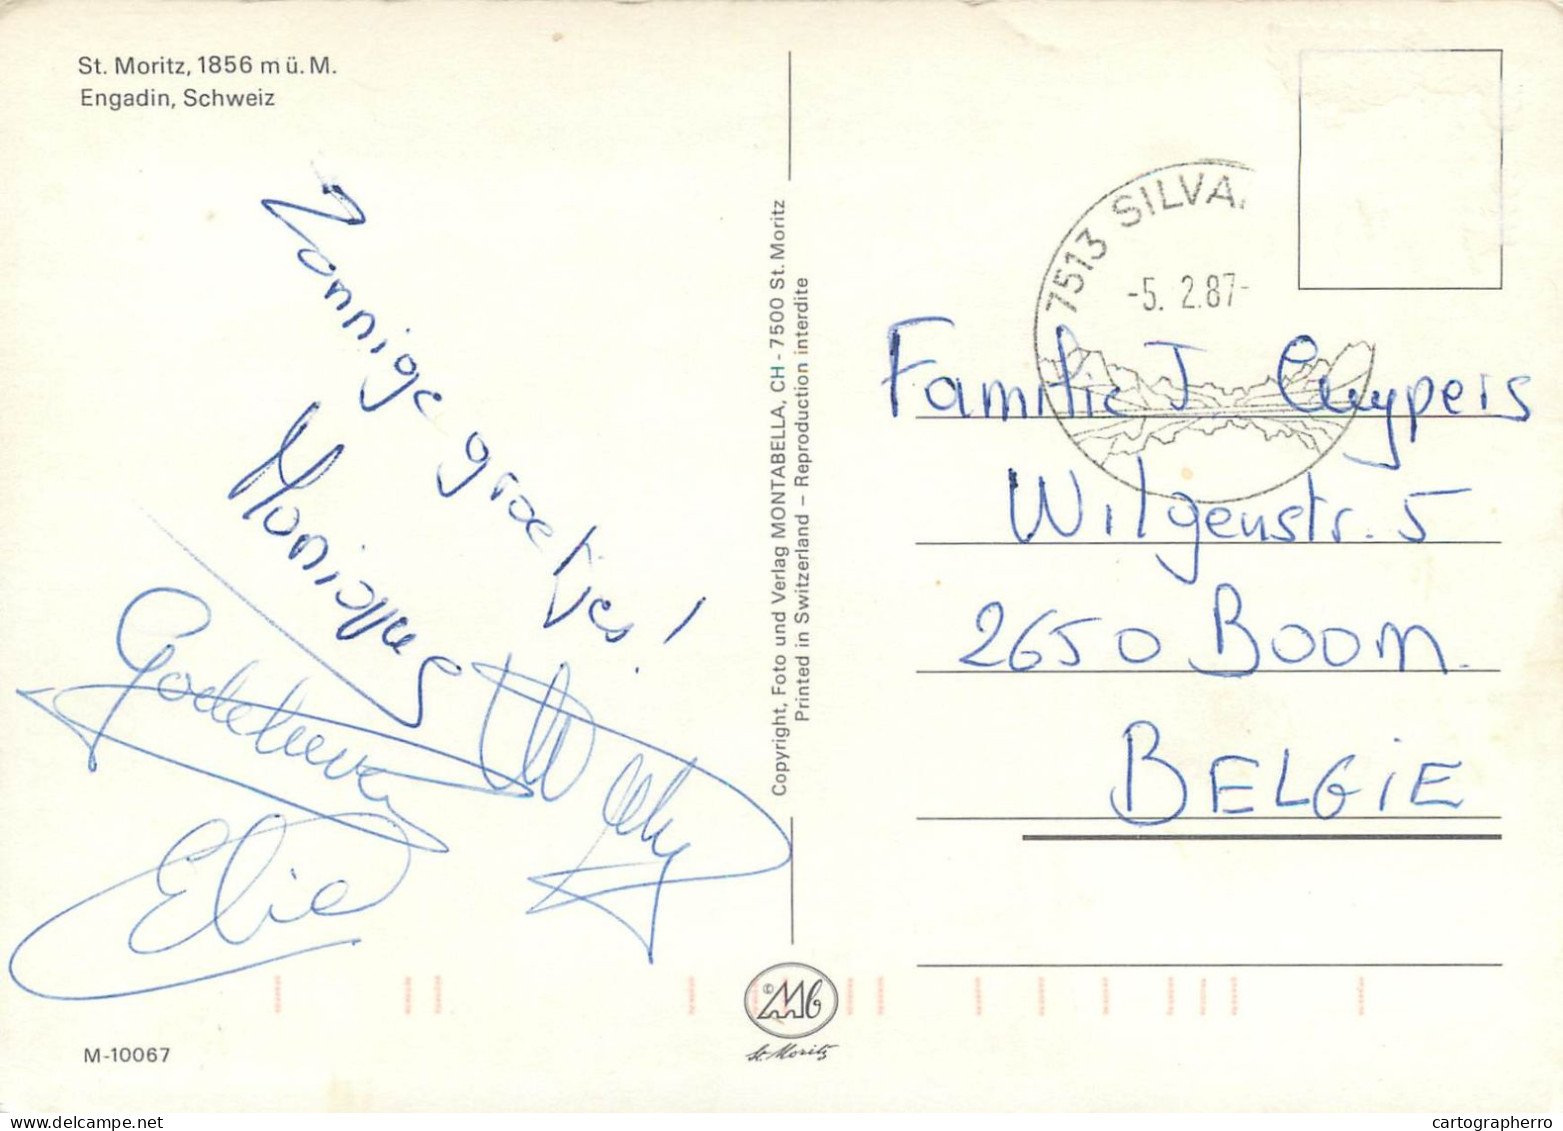 St. Moritz, 1856 m ü. M.
Engadin, Schweiz
Zonnige groetjes!
Godelieve
Willy
Elie
M-10067
Copyright, Foto und Verlag MONTABELLA, CH - 7500 St. Moritz
Printed in Switzerland – Reproduction interdite
© Mb
St. Moritz
7513 SILVA
-5. 2.87-
Familie J Cuypers
Wilgenstr. 5
2650 BOOM.
BELGIE
cartographerro